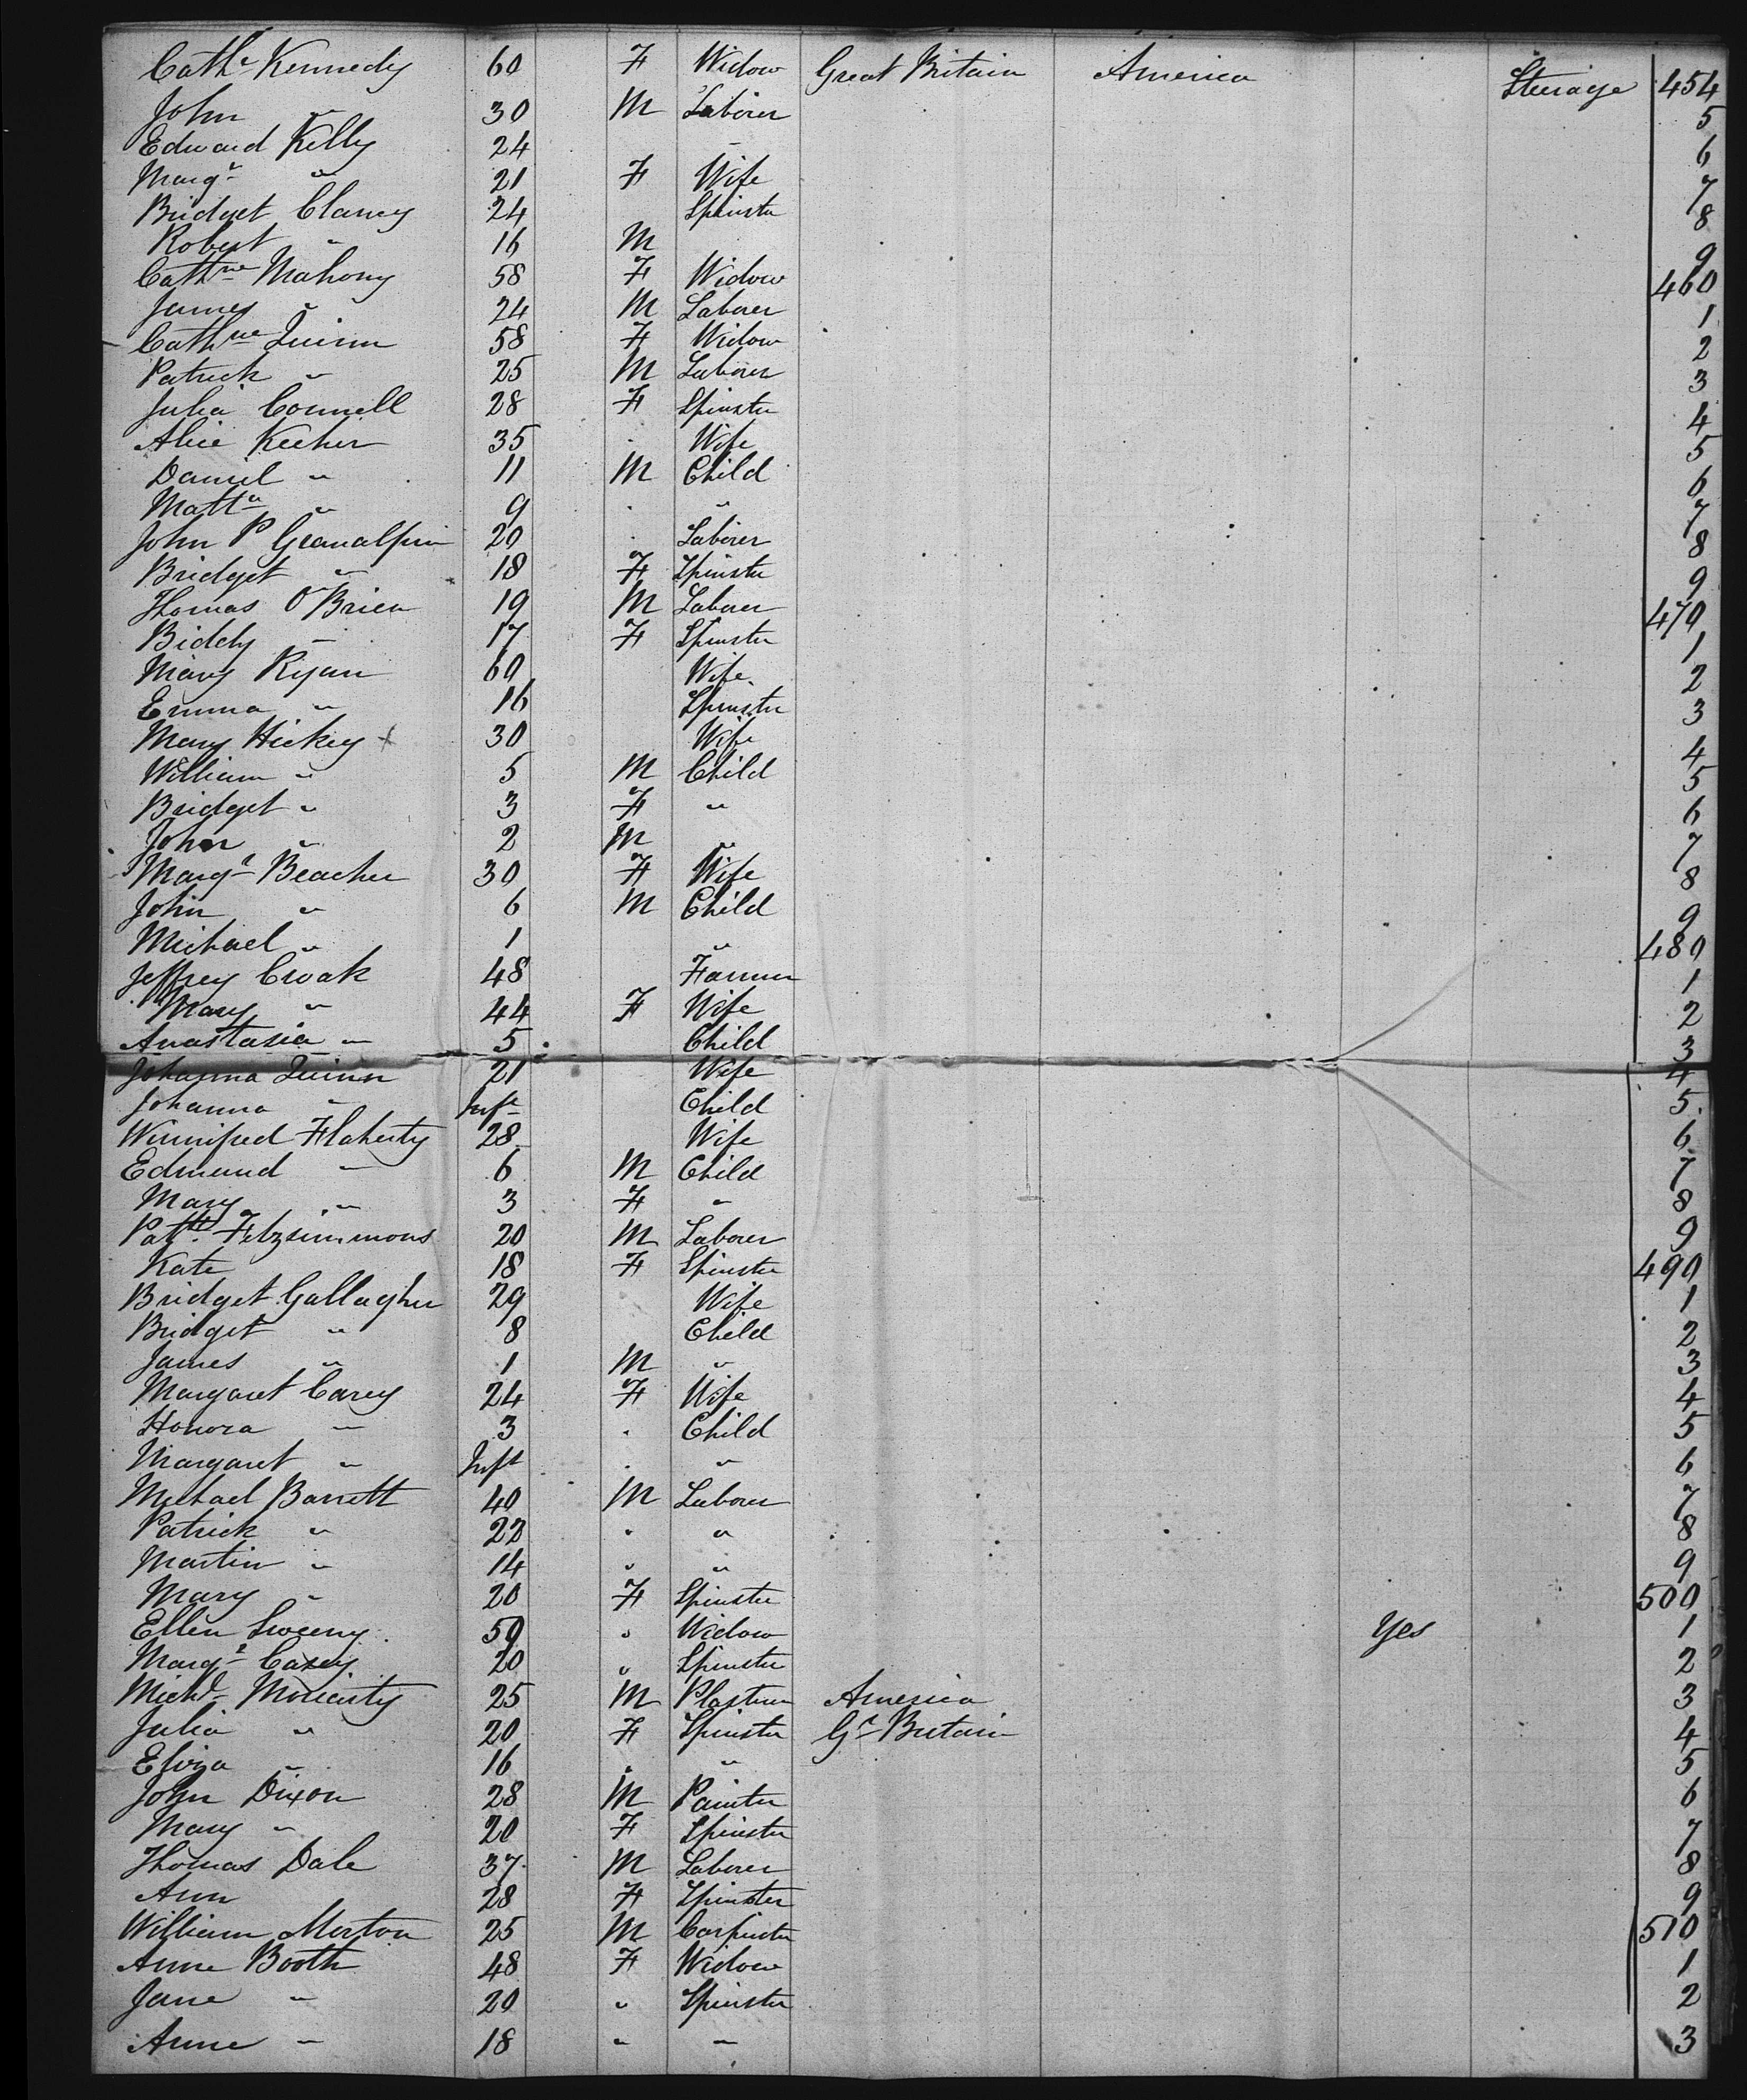 Cath.e Kennedy 60 F Widow Great Britain America Steerage 454
John " 30 M Laborer 5
Edward Kelly 24 " 6
Marg.t " 21 F Wife 7
Bridget Clancy 24 Spinster 8
Robert " 16 M 9
Cath.ne Mahony 58 F Widow 460
James " 24 M Laborer 1
Cath.ne Quinn 58 F Widow 2
Patrick " 25 M Laborer 3
Julia Connell 28 F Spinster 4
Alice Keeher 35 " Wife 5
Daniel " 11 M Child 6
Matt.w " 9 " " 7
John P 20 " Laborer 8
Bridget " 18 F Spinster 9
Thomas O'Brien 19 M Laborer 470
Biddy " 17 F Spinster 1
Mary Ryan 60 Wife 2
Emma " 16 Spinster 3
Mary Hickey 30 Wife 4
William " 5 M Child 5
Bridget " 3 F " 6
John " 2 M " 7
Marg.t Beacher 30 F Wife 8
John " 6 M Child 9
Michael " 1 " 480
Jeffrey Croak 48 Farmer 1
Mary " 44 F Wife 2
Anastasia " 5 Child 3
Johanna Quinn 21 Wife 4
Johanna " Inft Child 5
Winnifred Flaherty 28 Wife 6
Edmund " 6 M Child 7
Mary " 3 F " 8
Patk. Fitzsimmons 20 M Laborer 9
Kate 18 F Spinster 490
Bridget Gallagher 29 Wife 1
Bridget " 8 Child 2
James " 1 M " 3
Margaret Carey 24 F Wife 4
Honora " 3 " Child 5
Margaret " Inft " " 6
Michael Barrett 40 M Laborer 7
Patrick " 22 " " 8
Martin " 14 " " 9
Mary " 20 F Spinster 500
Ellen Sweeny 50 " Widow Yes 1
Marg.t Casey 20 " Spinster 2
Mich.l Moriarty 25 M Plasterer America 3
Julia " 20 F Spinster G.t Britain 4
Eliza " 16 " " 5
John Dixon 28 M Painter 6
Mary " 20 F Spinster 7
Thomas Dale 37 M Laborer 8
Ann 28 F Spinster 9
William Morton 25 M Carpenter 510
Anne Booth 48 F Widow 1
Jane " 20 " Spinster 2
Anne " 18 " " 3